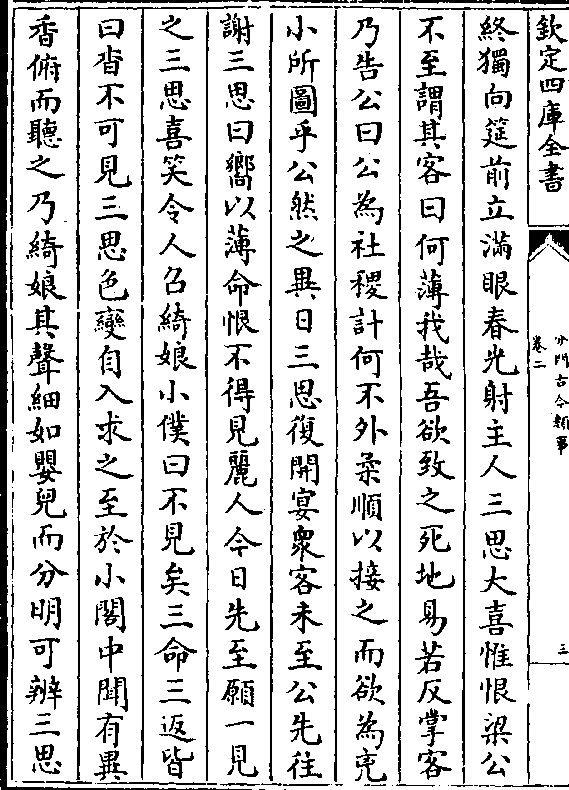 欽定四庫全書
分門古今類事
卷二
三
終獨向筵前立滿眼春光射主人三思大喜惟恨梁公
不至謂其客曰何薄我哉吾欲致之死地易若反掌客
乃告公曰公為社稷計何不外柔順以接之而欲為兖
小所圖乎公然之異日三思復開宴衆客未至公先往
謝三思曰嚮以薄命恨不得見麗人今日先至願一見
之三思喜笑令人召綺娘小僕曰不見矣三命三返皆
曰沓不可見三思色變自入求之至於小閣中聞有異
香俯而聽之乃綺娘其聲細如嬰兒而分明可辨三思